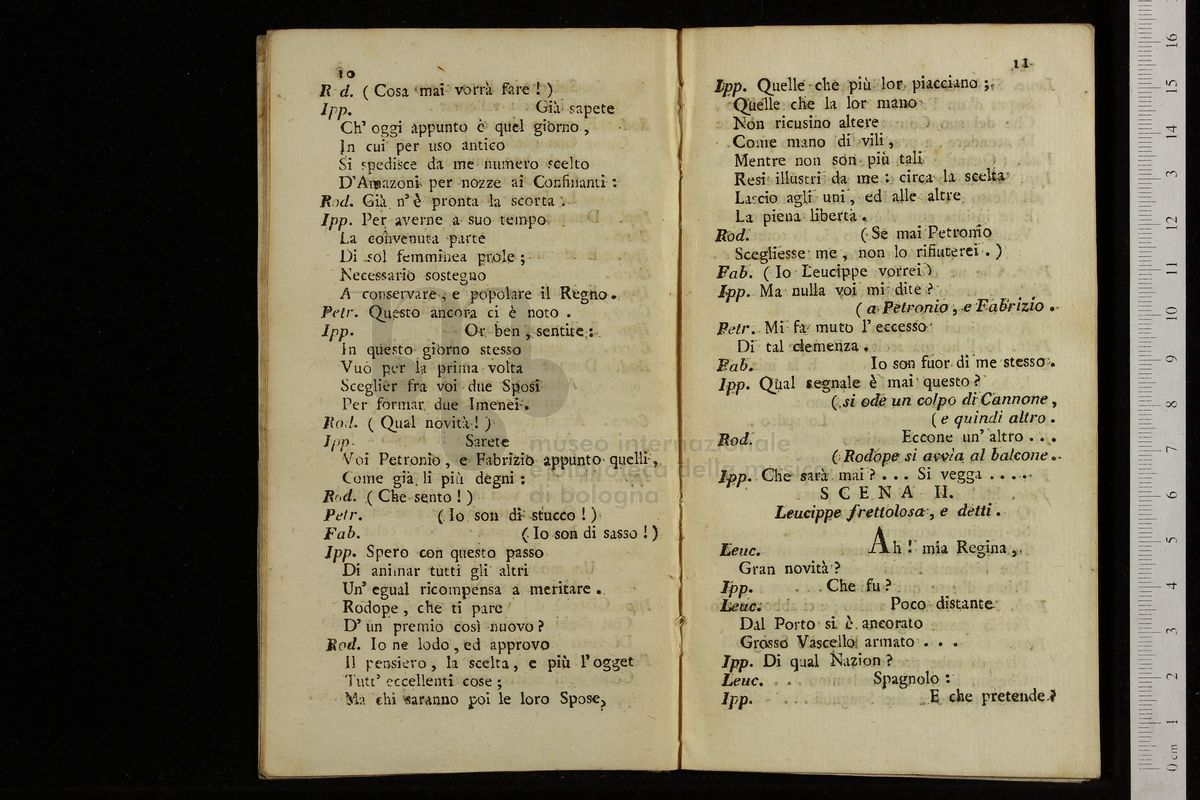 10
Rod. ( Cosa mai vorrà fare ! )
Ipp. Già sapete
Ch' oggi appunto è quel giorno ,
In cui per uso antico
Si spedisce da me numero scelto
D'Amazoni per nozze ai Confinanti :
Rod. Già n'è pronta la scorta .
Ipp. Per averne a suo tempo
La convenuta parte
Di sol femminea prole ;
Necessario sostegno
A conservare , e popolare il Regno .
Petr. Questo ancora ci è noto .
Ipp. Or ben , sentite :
In questo giorno stesso
Vuò per la prima volta
Sceglier fra voi due Sposi
Per formar due Imenei .
Rod. ( Qual novità ! )
Ipp. Sarete
Voi Petronio , e Fabrizio appunto quelli ,
Come già li più degni :
Rod. ( Che sento ! )
Petr. ( Io son di stucco ! )
Fab. ( Io son di sasso ! )
Ipp. Spero con questo passo
Di animar tutti gli altri
Un' egual ricompensa a meritare .
Rodope , che ti pare
D' un premio così nuovo ?
Rod. Io ne lodo , ed approvo
Il pensiero , la scelta , e più l' ogget
Tutt' eccellenti cose ;
Ma chi saranno poi le loro Spose ,
11
Ipp. Quelle che più lor piacciano ;
Quelle che la lor mano
Non ricusino altere
Come mano di vili ,
Mentre non son più tali
Resi illustri da me : circa la scelta
Lascio agli uni , ed alle altre
La piena libertà .
Rod. ( Se mai Petronio
Scegliesse me , non lo rifiuterei . )
Fab. ( Io Leucippe vorrei )
Ipp. Ma nulla voi mi dite ?
( a Petronio , e Fabrizio .
Petr. Mi fa muto l' eccesso
Di tal clemenza .
Fab. Io son fuor di me stesso .
Ipp. Qual segnale è mai questo ?
( si ode un colpo di Cannone ,
( e quindi altro .
Rod. Eccone un' altro . . .
( Rodope si avvia al balcone .
Ipp. Che sarà mai ? . . . Si vegga . . . . .
SCENA II.
Leucippe frettolosa , e detti .
Leuc. Ah ! mia Regina ,
Gran novità ?
Ipp. Che fu ?
Leuc. Poco distante
Dal Porto si è ancorato
Grosso Vascello armato . . .
Ipp. Di qual Nazion ?
Leuc. Spagnolo :
Ipp. E che pretende ?
museo internazionale
e biblioteca della musica
di bologna
0 cm 1 2 3 4 5 6 7 8 9 10 11 12 13 14 15 16